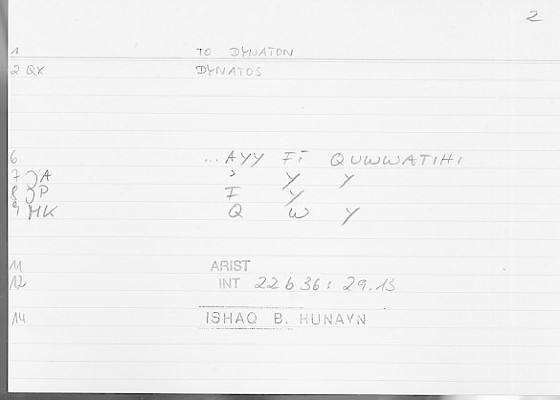 2
1 TO DYNATON
2 QX DYNATOS
6 ... AYY FI QUWWATIHI
7 ZA ' Y Y
8 ZP F Y
9 MK Q W Y
11 ARIST
12 INT 22 b 36 : 29.13
14 ISHAQ B. HUNAYN